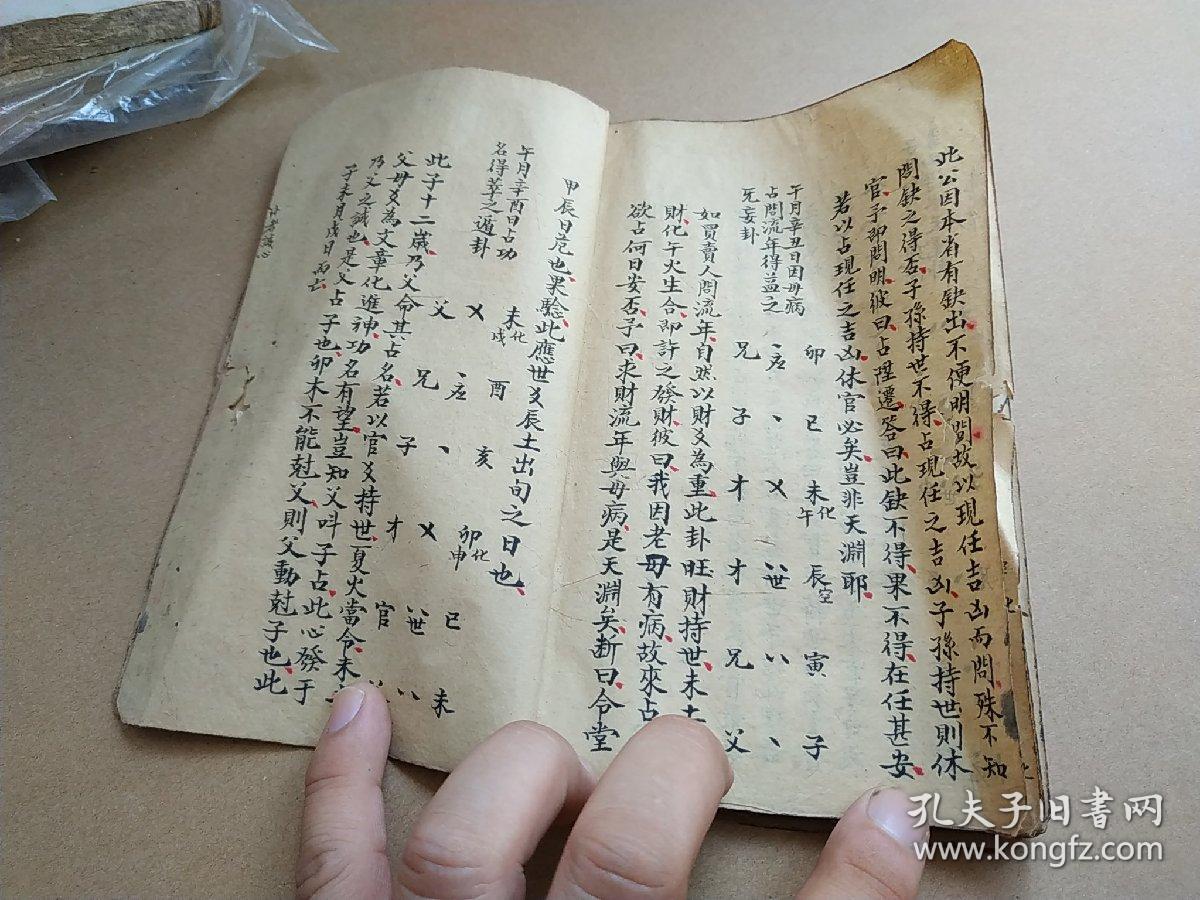 此公因本省有缺出不便明問故以現任吉凶而問殊不知
問缺之得否子孫持世不得占現任之吉凶子孫持世則休
官予即問明彼曰占陞遷答曰此缺不得果不得在任甚安
若以占現任之吉凶休官必矣豈非天淵耶
午月辛丑日因母病
占問流年得益之
无妄卦
卯 巳 未化午 辰空 寅 子
應 世
兄 子 才 才 兄 父
如買賣人問流年自然以財爻為重此卦旺財持世未土
財化午火生合即許之發財彼曰我因老母有病故來占
欲占何日安否予曰求財流年與母病是天淵矣斷曰令堂
甲辰日危也果驗此應世爻辰土出旬之日也
午月辛酉日占功
名得萃之遁卦
未化戌 酉 亥 卯化申 巳 未
應 世
父 兄 子 才 官
此子十二歲乃父命其占名若以官爻持世夏火當令未
父母爻為文章化進神功名有望豈知父叫子占此心發于
乃父之誠也是父占子也卯木不能尅父則父動尅子也此
子未月戊日而亡
孔夫子旧书网
www.kongfz.com